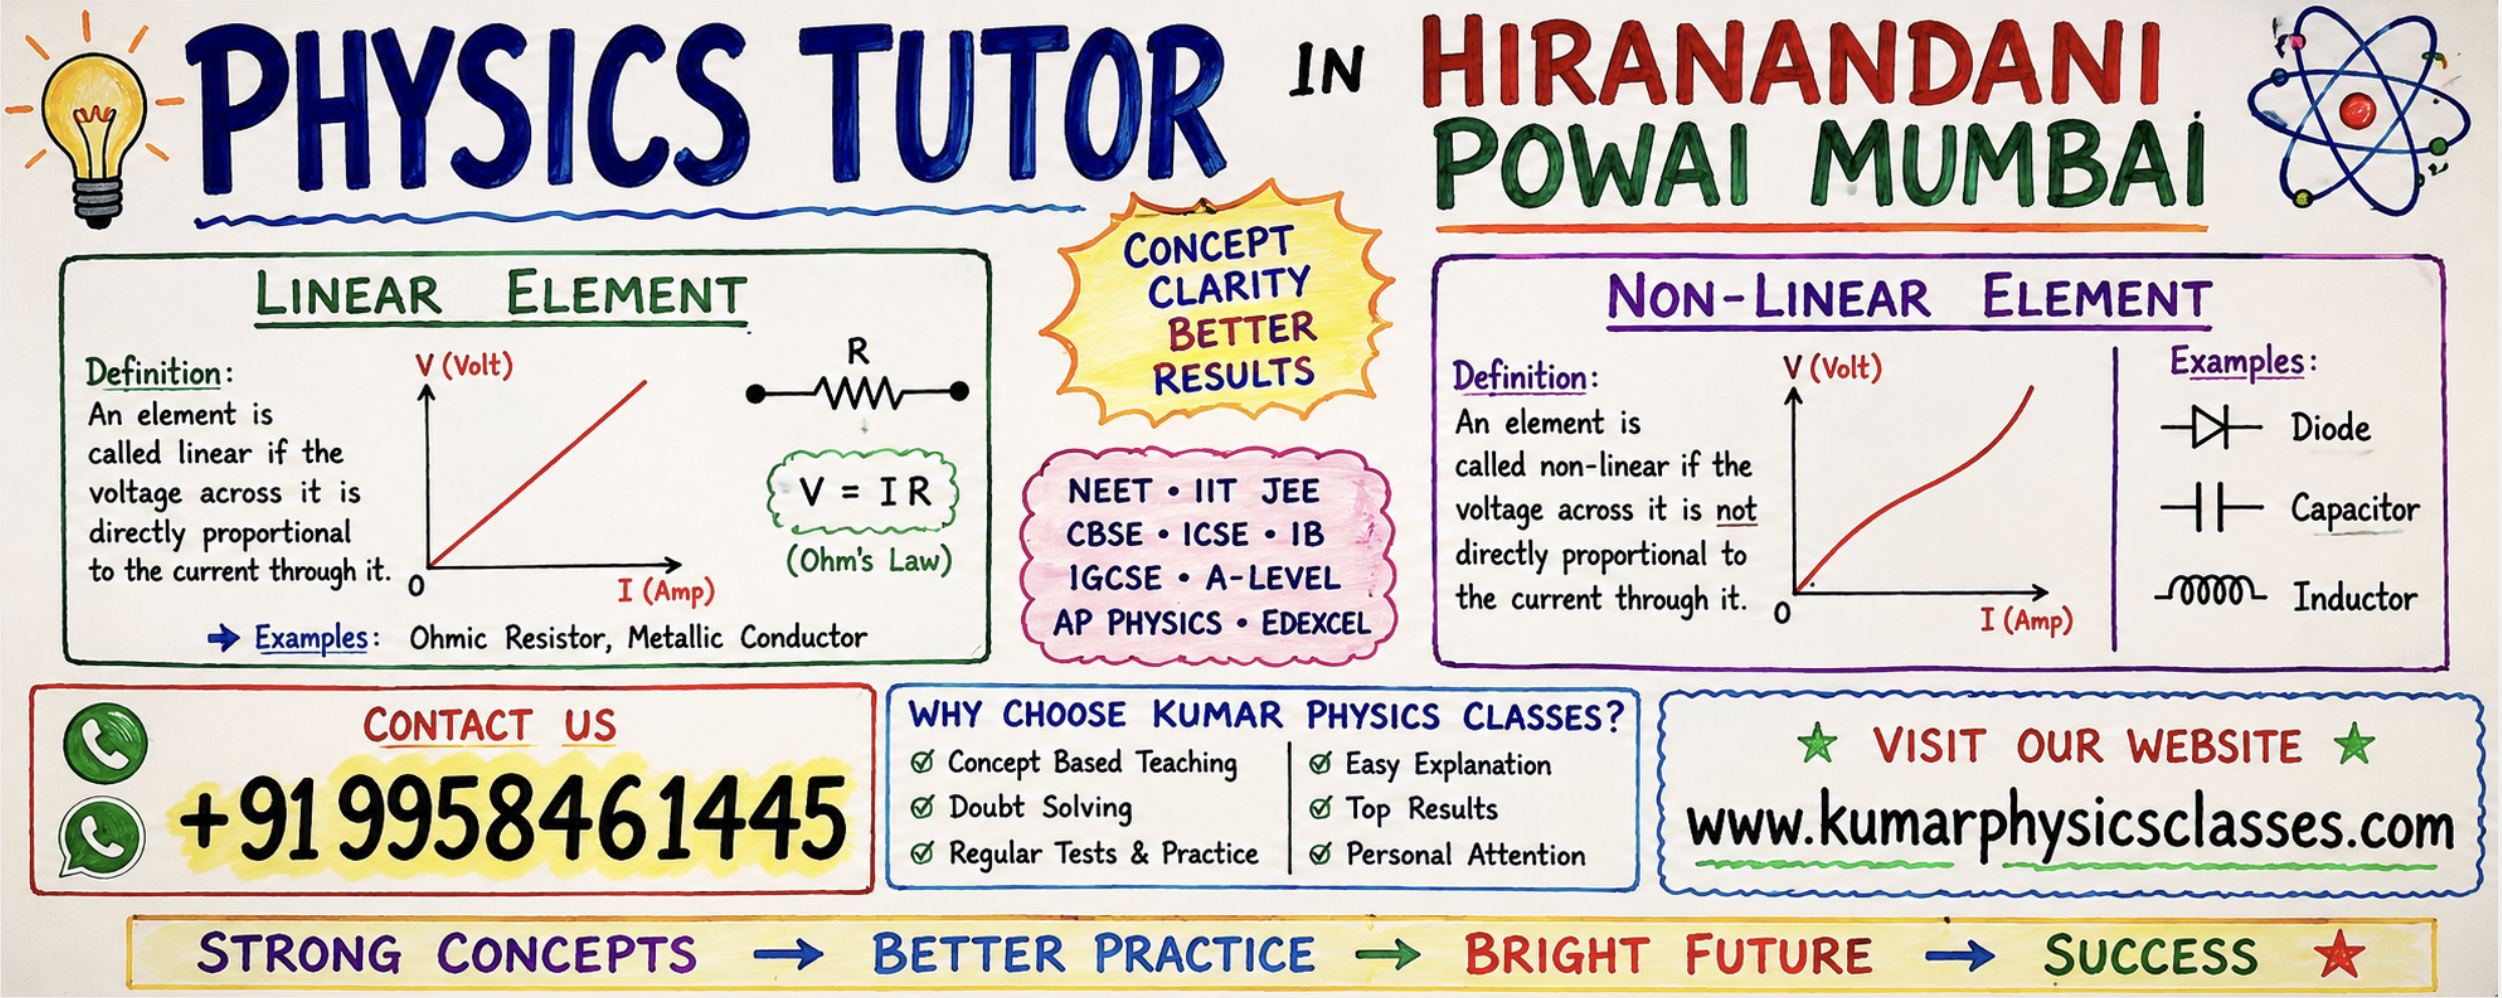 PHYSICS TUTOR IN HIRANANDANI
POWAI MUMBAI
CONCEPT
CLARITY
BETTER
RESULTS
LINEAR ELEMENT
Definition:
An element is
called linear if the
voltage across it is
directly proportional
to the current through it.
V (Volt)
O
I (Amp)
R
V = IR
(Ohm's Law)
Examples: Ohmic Resistor, Metallic Conductor
NEET • IIT JEE
CBSE • ICSE • IB
IGCSE • A-LEVEL
AP PHYSICS • EDEXCEL
NON-LINEAR ELEMENT
Definition:
An element is
called non-linear if the
voltage across it is not
directly proportional to
the current through it.
V (Volt)
O
I (Amp)
Examples:
Diode
Capacitor
Inductor
CONTACT US
+91 9958461445
WHY CHOOSE KUMAR PHYSICS CLASSES?
Concept Based Teaching
Doubt Solving
Regular Tests & Practice
Easy Explanation
Top Results
Personal Attention
VISIT OUR WEBSITE
www.kumarphysicsclasses.com
STRONG CONCEPTS → BETTER PRACTICE → BRIGHT FUTURE → SUCCESS